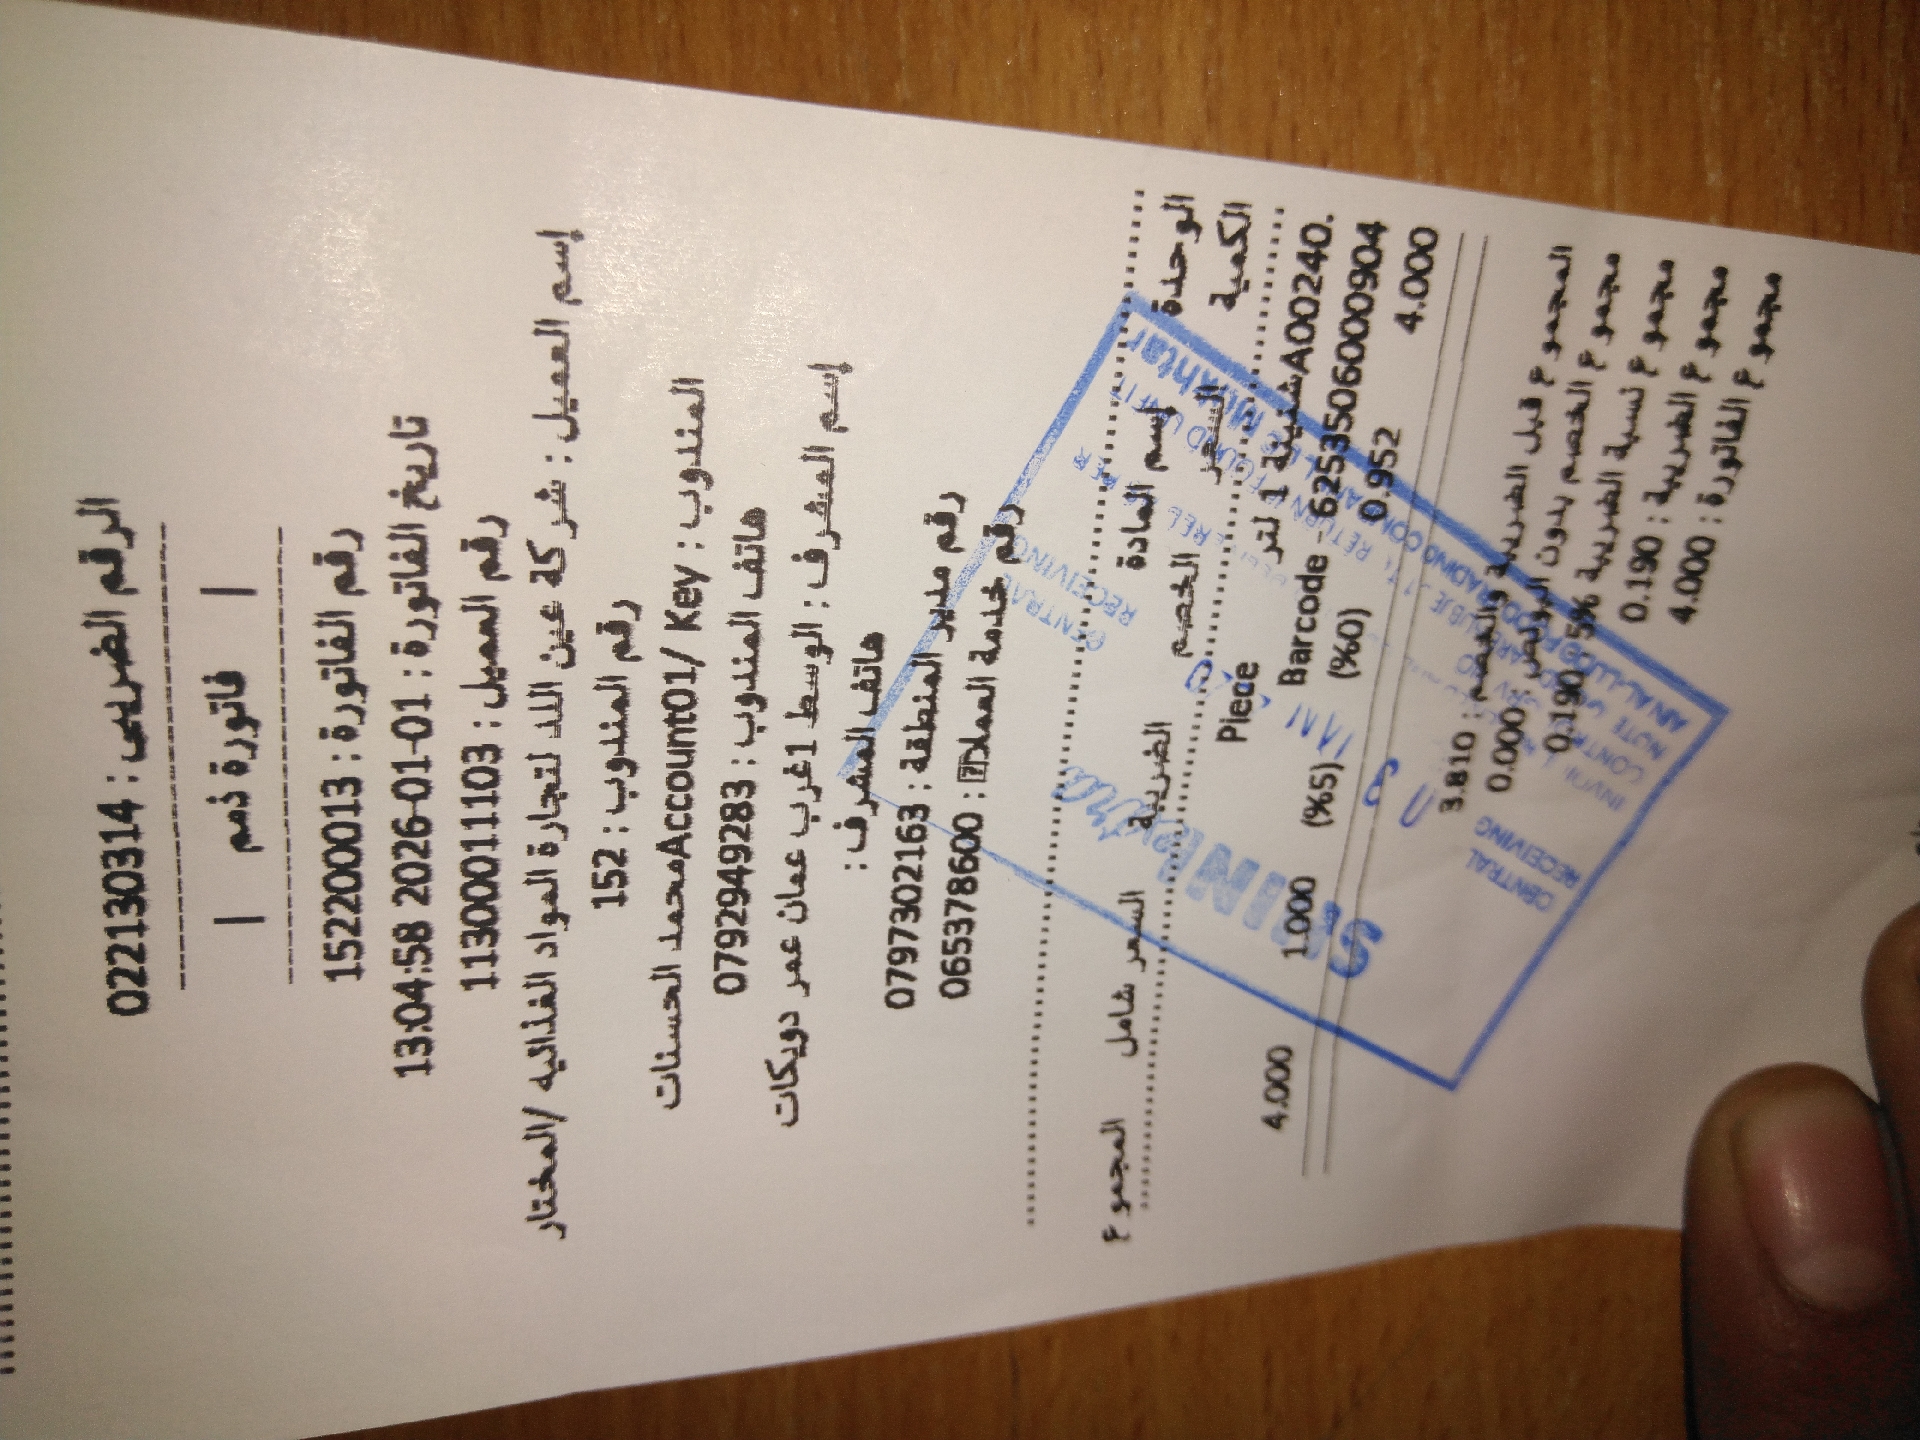 الرقم الضريبي : 022130314
| فاتورة ذمم |
رقم الفاتورة : 152200013
تاريخ الفاتورة : 01-01-2026 13:04:58
رقم العميل : 1130001103
إسم العميل : شركة عين اللد لتجارة المواد الغذائيه /المختار
رقم المندوب : 152
المندوب : Account01/ Keyمحمد الحسنات
هاتف المندوب : 0792949283
إسم المشرف : الوسط 1غرب عمان عمر دويكات
هاتف المشرف :
رقم مدير المنطقة : 0797302163
رقم خدمة العملاء : 065378600
الوحدة إسم المادة الضريبة السعر شامل المجموع
الكمية السعر الخصم
A00240. شنينة 1 لتر Piece
Barcode - 6253506000904
4.000 0.952 (%0) (%5) 1.000 4.000
المجموع قبل الضريبة والخصم : 3.810
مجموع الخصم بدون البونص : 0.000
مجموع نسبة الضريبة 5% : 0.190
مجموع الضريبة : 0.190
مجموع الفاتورة : 4.000
CENTRAL
RECEIVING
CENTRAL
RECEIVING
AIN AL-LUDD FOOD TRADING COMPANY
Mukhtar